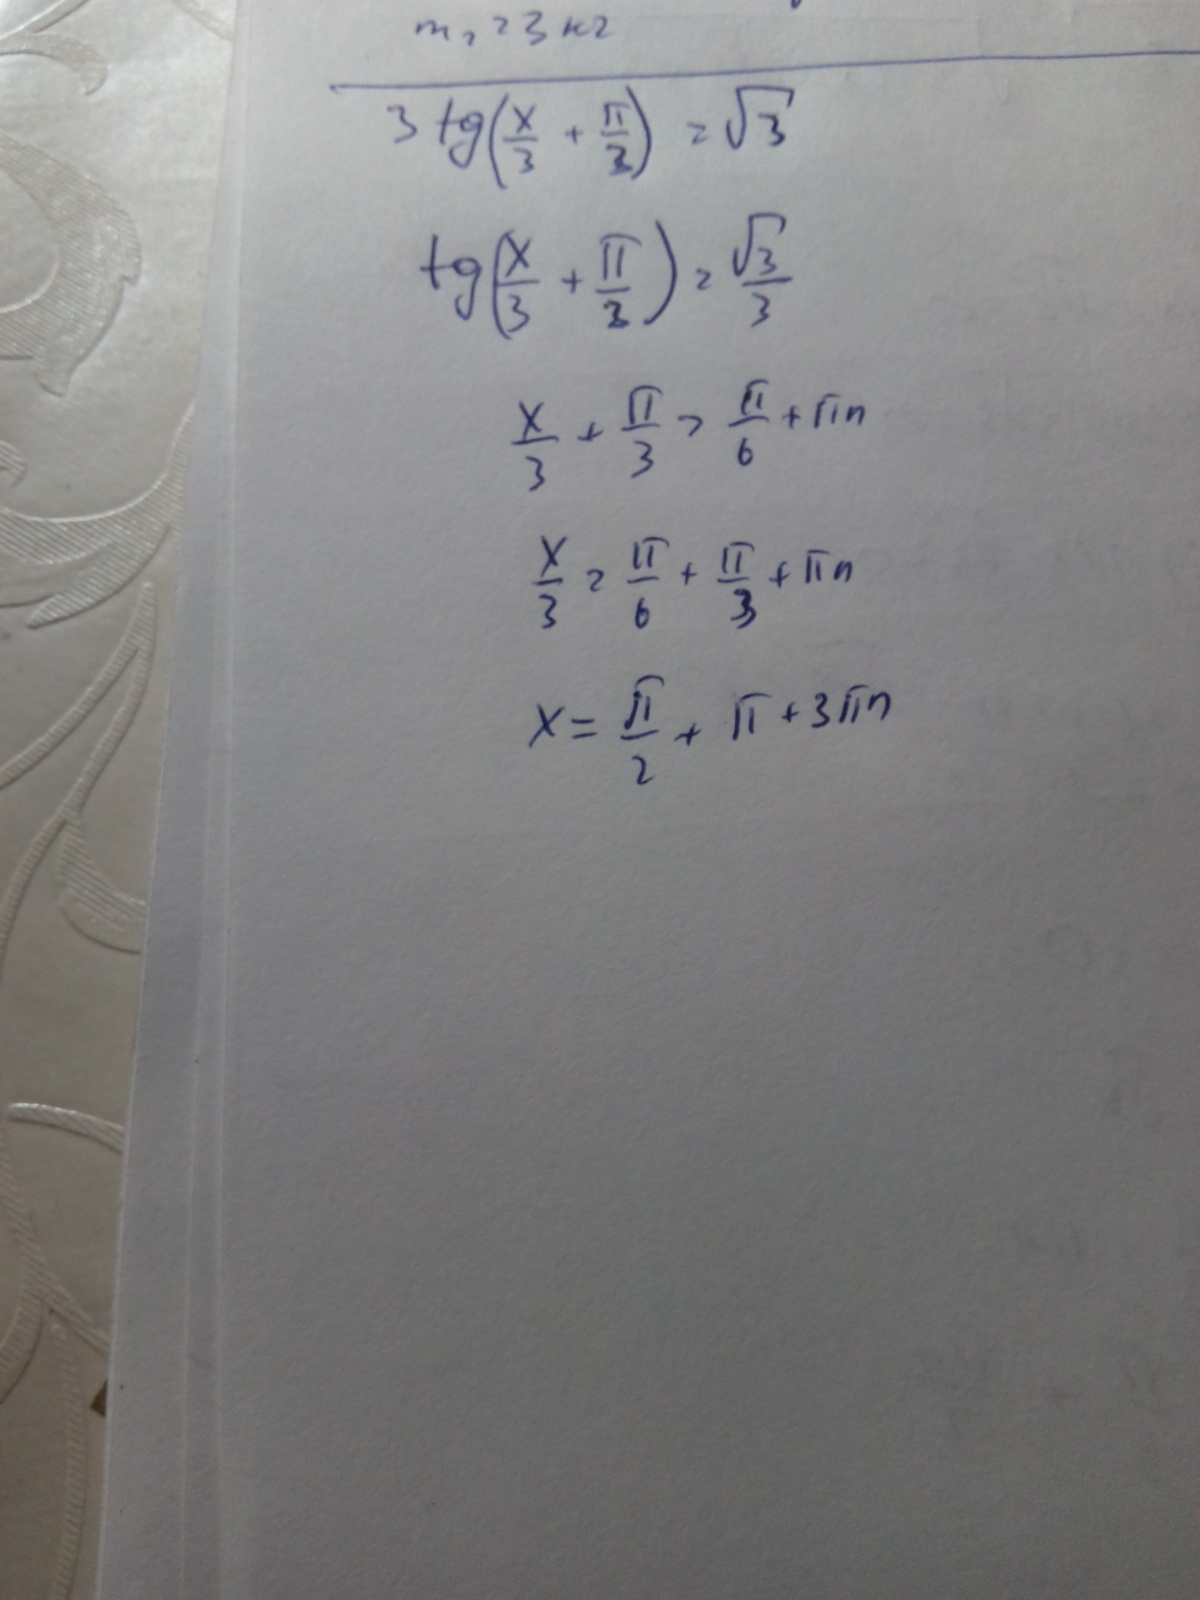 m, = 3 кг
3 tg(x/3 + π/3) = √3
tg(x/3 + π/3) = √3/3
x/3 + π/3 = π/6 + πn
x/3 = π/6 + π/3 + πn
x = π/2 + π + 3πn